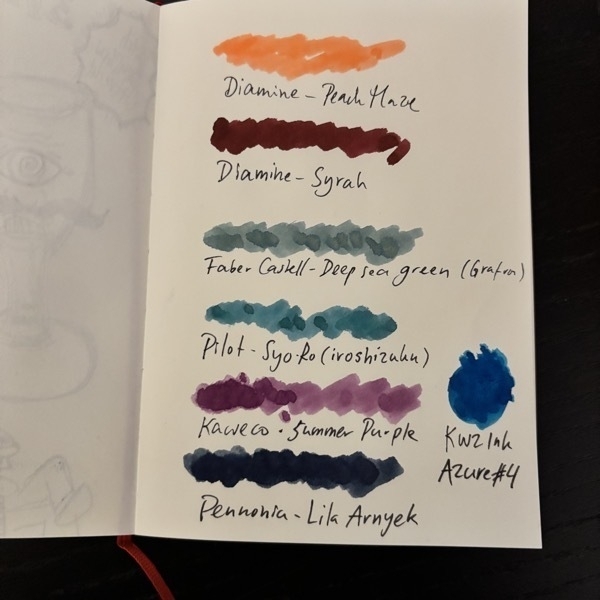 Diamine - Peach Haze
Diamine - Syrah
Faber Castell - Deep sea green (Grafvon)
Pilot - Syo-Ro (iroshizuku)
Kaweco - Summer Purple
KWZ Ink
Azure #4
Pennonia - Lila Arnyek